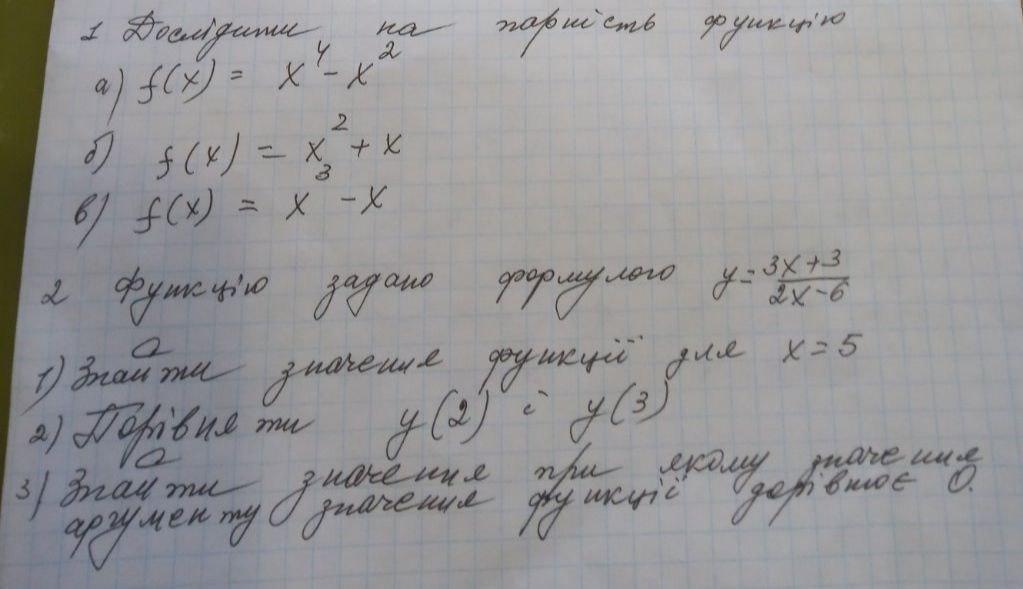 1 Дослідити на парність функцію
а) f(x) = x⁴ - x²
б) f(x) = x² + x
в) f(x) = x³ - x
2 Функцію задано формулою y = (3x+3)/(2x-6)
1) Знайти значення функції для x = 5
2) Порівняти y(2) і y(3)
3) Знайти значення при якому значення
аргументу значення функції дорівнює 0.